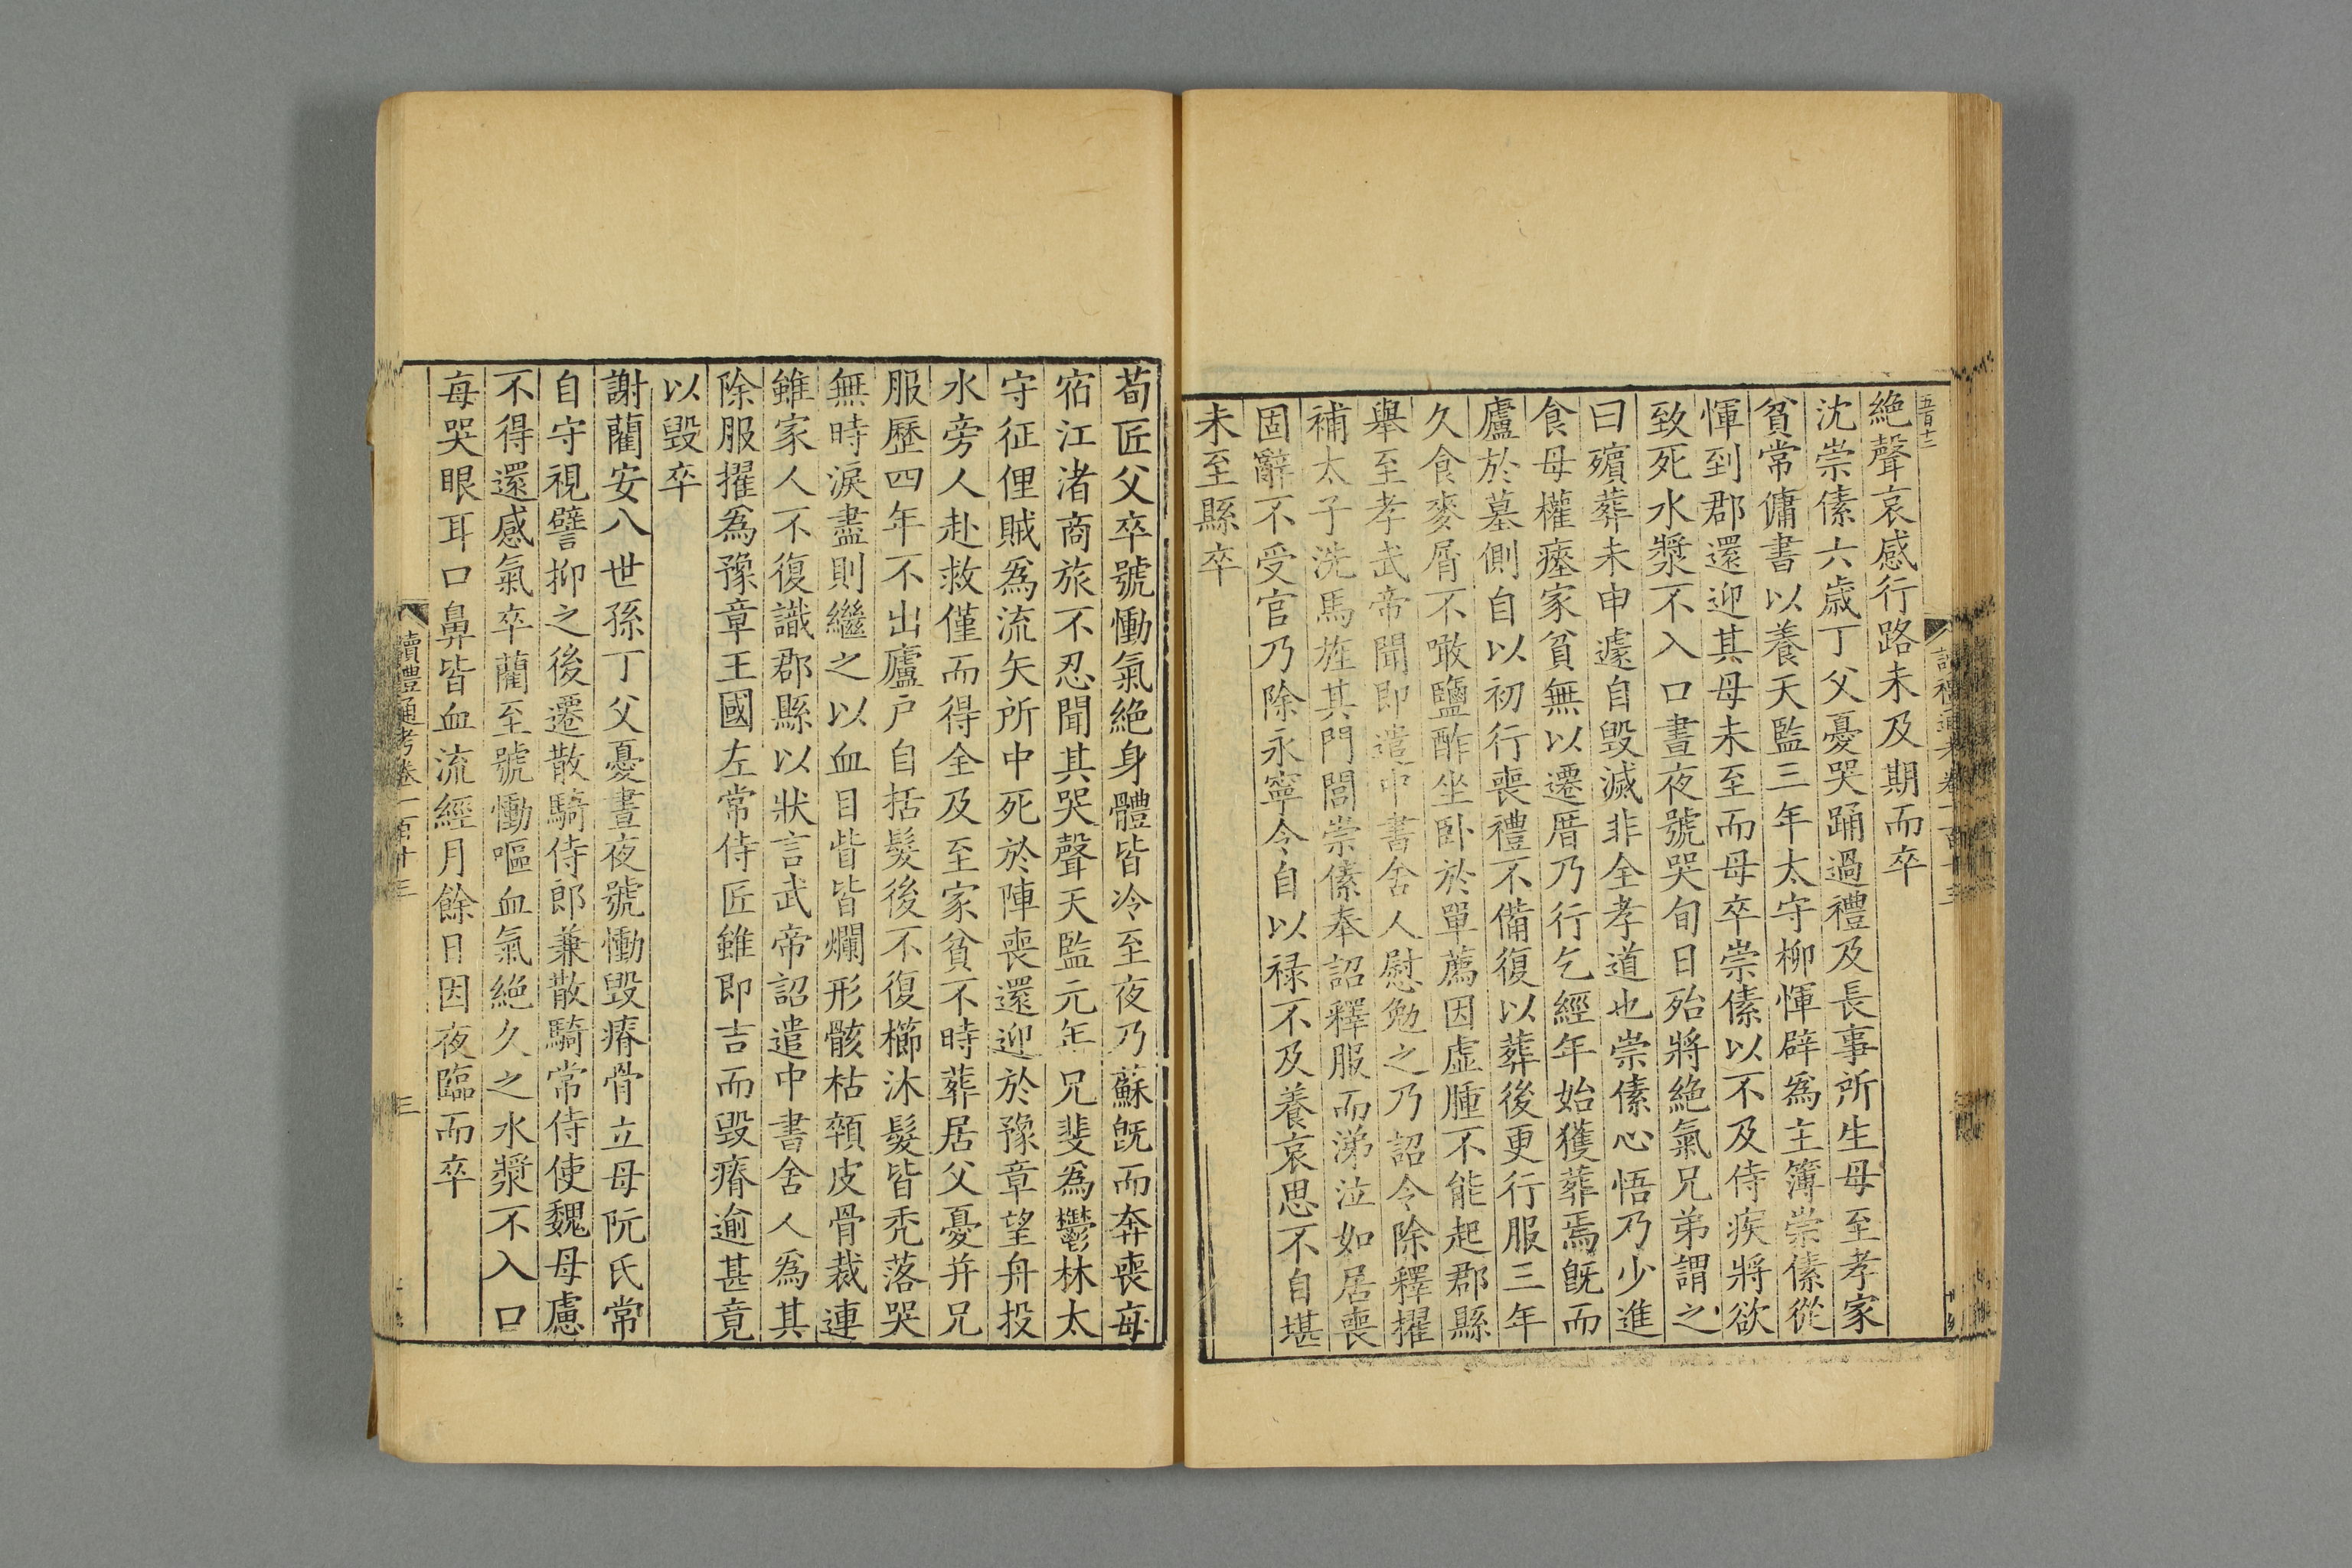 五百十二
絶聲哀感行路未及期而卒
沈崇傃六歲丁父憂哭踊過禮及長事所生母至孝家
貧常傭書以養天監三年太守柳惲辟爲主簿崇傃從
惲到郡還迎其母未至而母卒崇傃以不及侍疾將欲
致死水漿不入口晝夜號哭旬日殆將絶氣兄弟謂之
曰殯葬未申遽自毀滅非全孝道也崇傃心悟乃少進
食母權瘞家貧無以遷厝乃行乞經年始獲葬焉旣而
廬於墓側自以初行喪禮不備復以葬後更行服三年
久食麥屑不噉鹽酢坐卧於單薦因虛腫不能起郡縣
舉至孝武帝聞即遣中書舍人慰勉之乃詔令除釋擢
補太子洗馬旌其門閭崇傃奉詔釋服而涕泣如居喪
固辭不受官乃除永寧令自以祿不及養哀思不自堪
未至縣卒
荀匠父卒號慟氣絶身體皆冷至夜乃蘇旣而奔喪每
宿江渚商旅不忍聞其哭聲天監元年兄斐爲鬱林太
守征俚賊爲流矢所中死於陣喪還迎於豫章望舟投
水旁人赴救僅而得全及至家貧不時葬居父憂并兄
服歷四年不出廬戶自括髮後不復櫛沐髮皆禿落哭
無時淚盡則繼之以血目眥皆爛形骸枯顇皮骨裁連
雖家人不復識郡縣以狀言武帝詔遣中書舍人爲其
除服擢爲豫章王國左常侍匠雖即吉而毀瘠逾甚竟
以毀卒
謝藺安八世孫丁父憂晝夜號慟毀瘠骨立母阮氏常
自守視譬抑之後遷散騎侍郎兼散騎常侍使魏母慮
不得還感氣卒藺至號慟嘔血氣絶久之水漿不入口
每哭眼耳口鼻皆血流經月餘日因夜臨而卒
讀禮通考卷一百十三
三